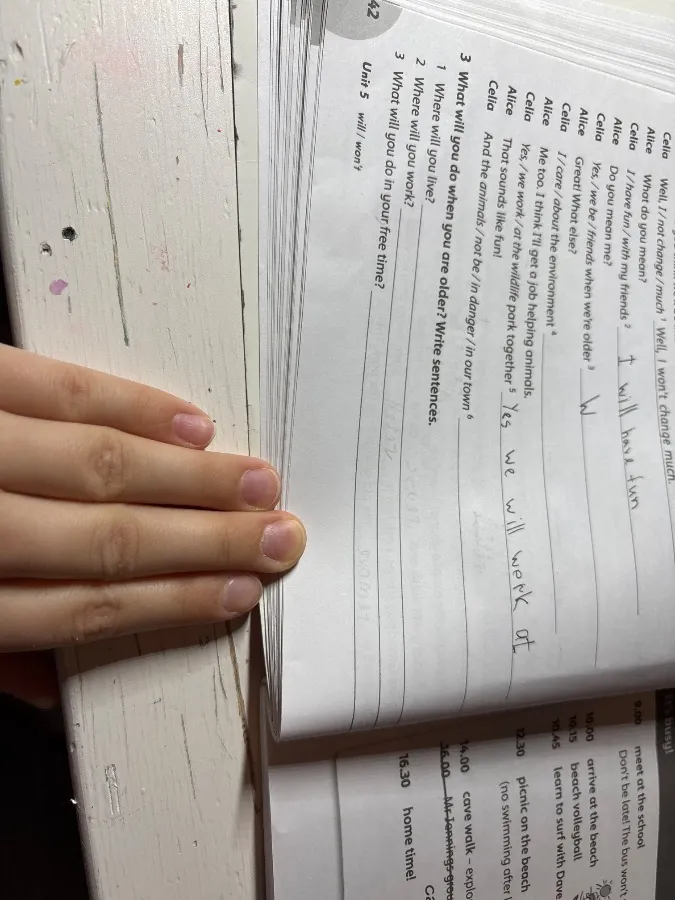 Celia Well, I / not change / much ¹ Well, I won't change much.
Alice What do you mean?
Celia I / have fun / with my friends ² I will have fun
Alice Do you mean me?
Celia Yes, / we be / friends when we're older ³ W
Alice Great! What else?
Celia I / care / about the environment ⁴
Alice Me too. I think I'll get a job helping animals.
Celia Yes, / we work / at the wildlife park together ⁵ Yes we will work at
Alice That sounds like fun!
Celia And the animals / not be / in danger / in our town ⁶
3 What will you do when you are older? Write sentences.
1 Where will you live?
2 Where will you work?
3 What will you do in your free time?
42 Unit 5 will / won't
busy!
9.00 meet at the school
Don't be late! The bus won't
10.00 arrive at the beach
10.15 beach volleyball
10.45 learn to surf with Dave
12.30 picnic on the beach
(no swimming after
14.00 cave walk – explo
16.00 Mr Jennings grou
16.30 home time!